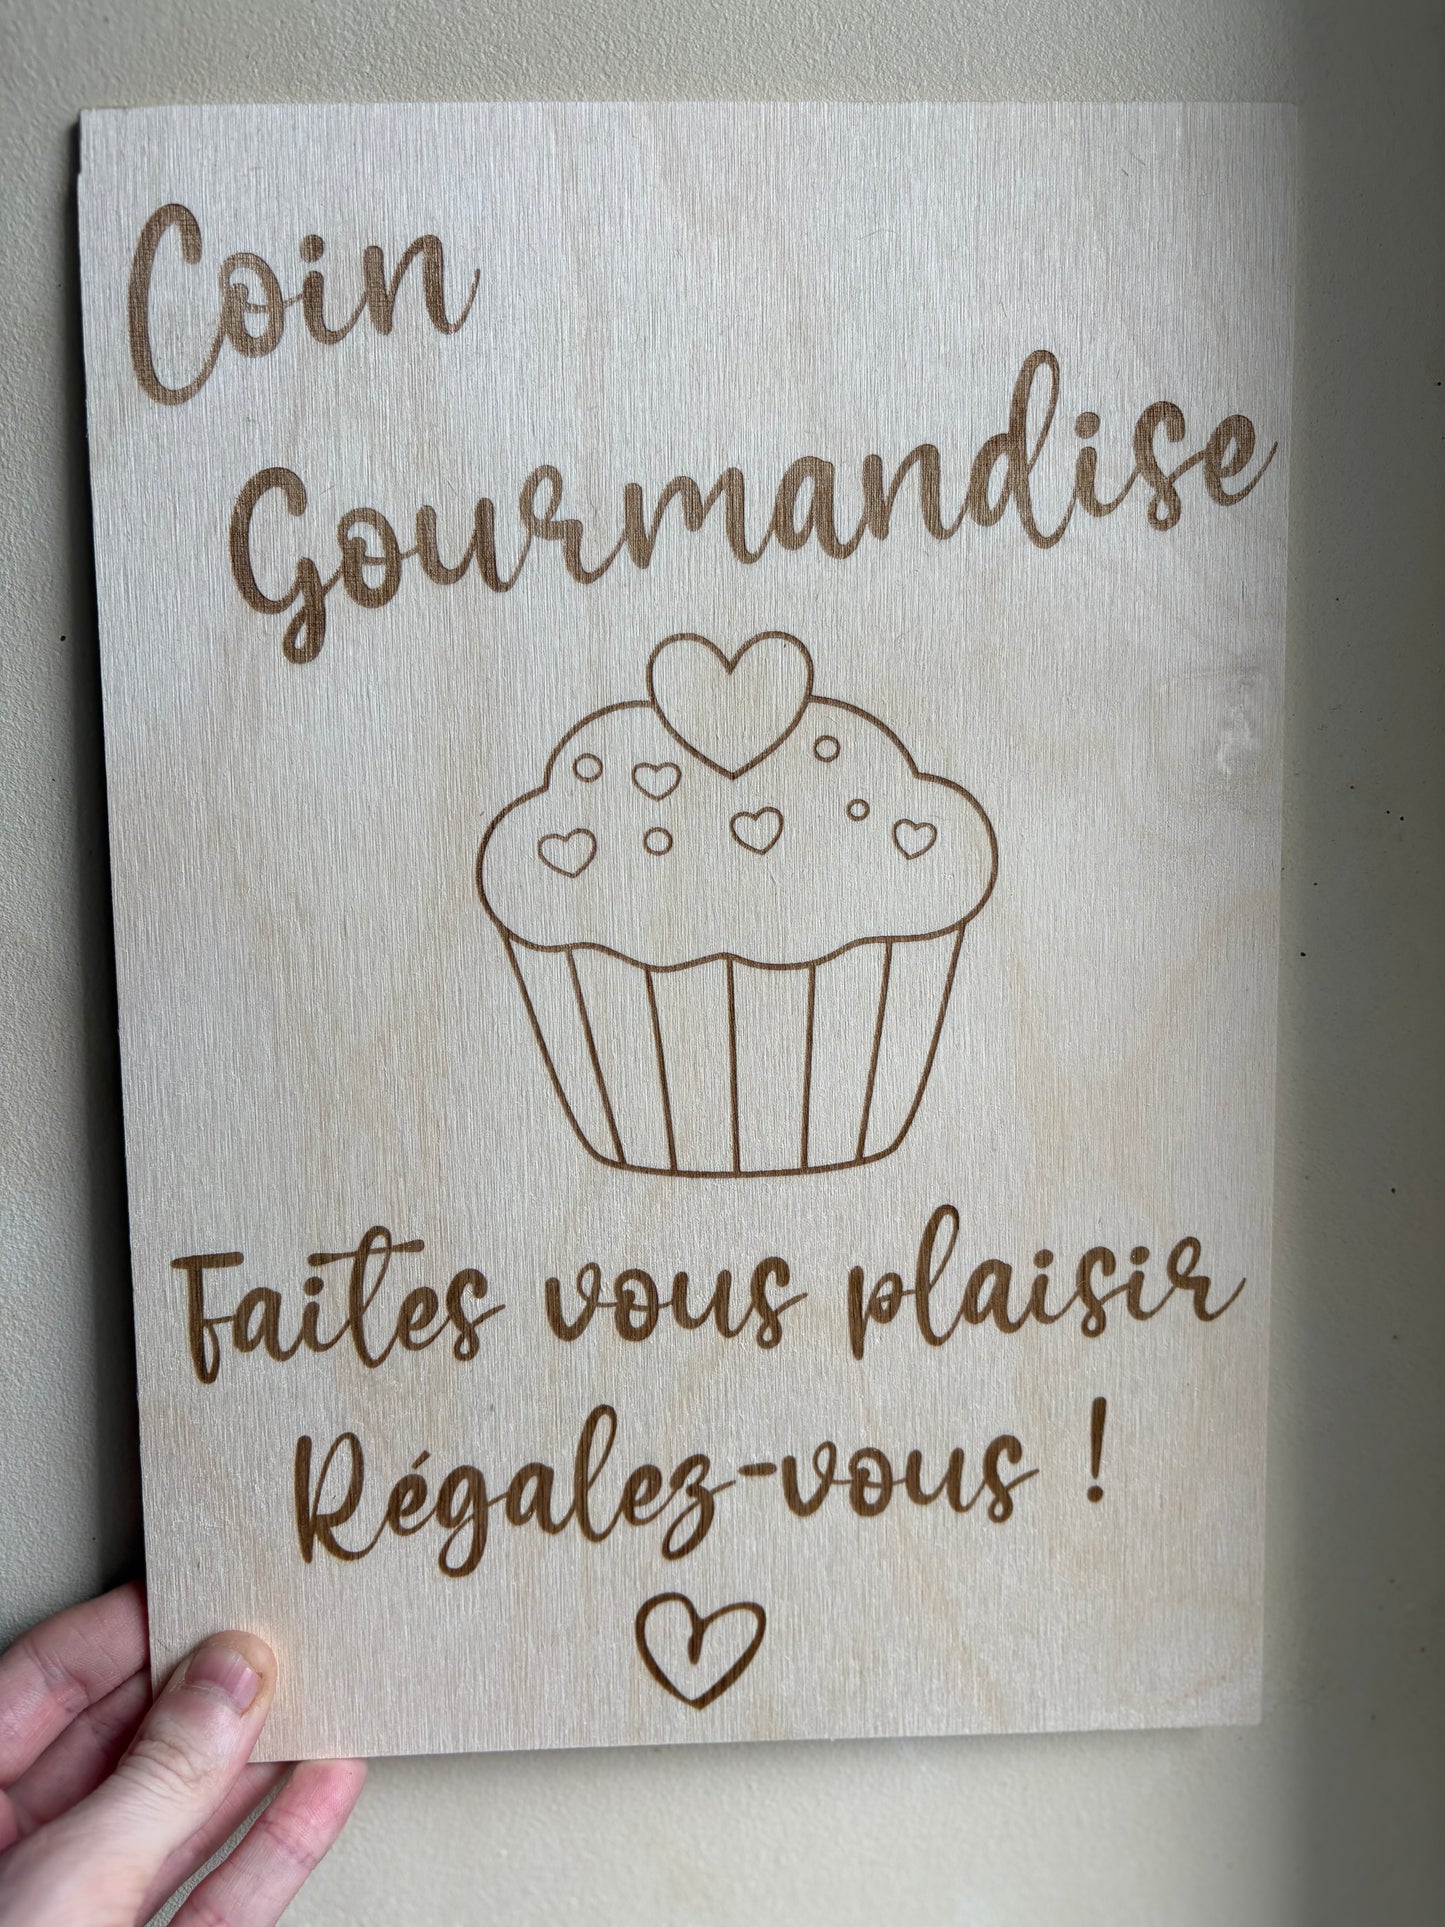 Coin
Gourmandise
Faites vous plaisir
Régalez-vous !